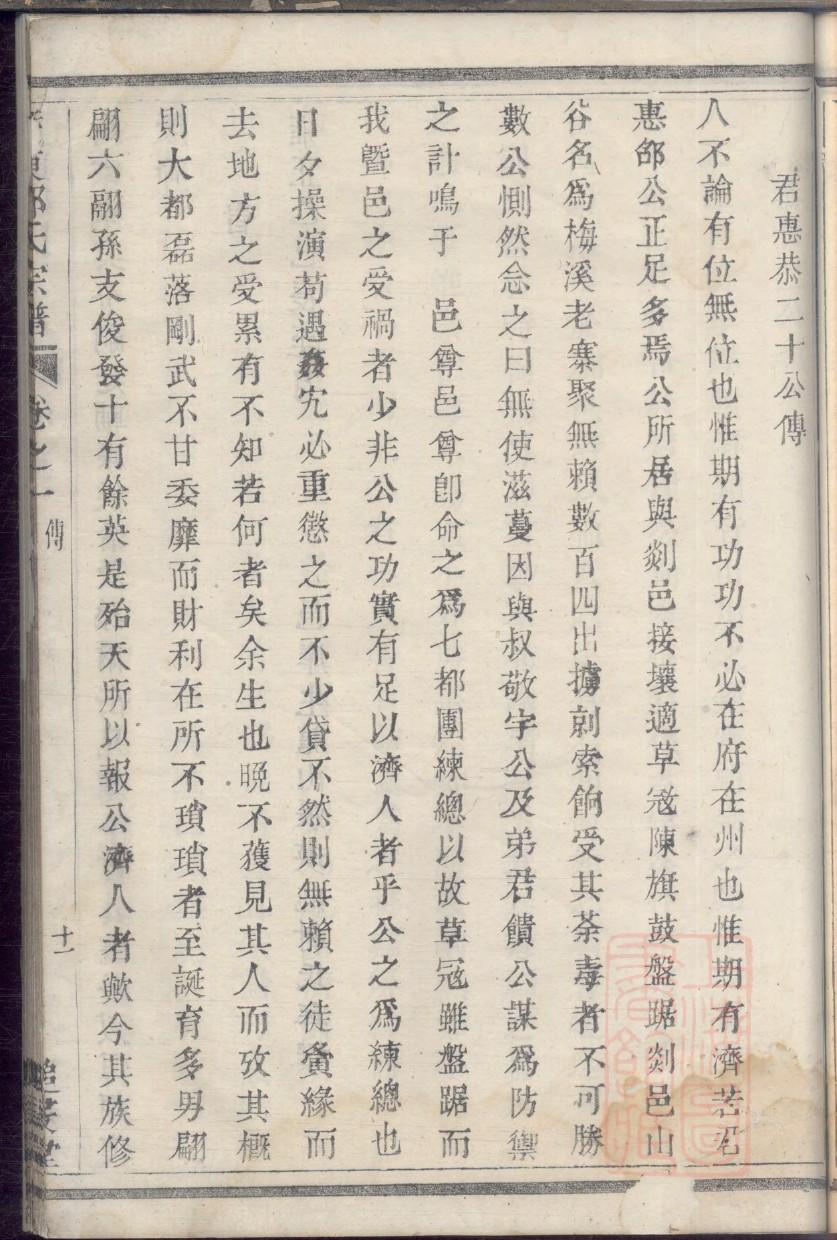 君惠恭二十公傳
人不論有位無位也惟期有功功不必在府在州也惟期有濟若君
惠郃公正足多焉公所居與剡邑接壤適草冦陳旗鼓盤踞剡邑山
谷名爲梅溪老寨聚無賴數百四出擄剠索餉受其荼毒者不可勝
數公惻然念之曰無使滋蔓因與叔敬宇公及弟君饋公謀爲防禦
之計鳴于 邑尊邑尊卽命之爲七都團練總以故草冦雖盤踞而
我暨邑之受禍者少非公之功實有足以濟人者乎公之爲練總也
日夕操演苟遇姦宄必重懲之而不少貸不然則無賴之徒夤緣而
去地方之受累有不知若何者矣余生也晚不獲見其人而攷其槪
則大都磊落剛武不甘委靡而財利在所不瑣瑣者至誕育多男翩
翩六翮孫支俊發十有餘英是殆天所以報公濟人者歟今其族修
氏宗譜 卷之一 傳 十一